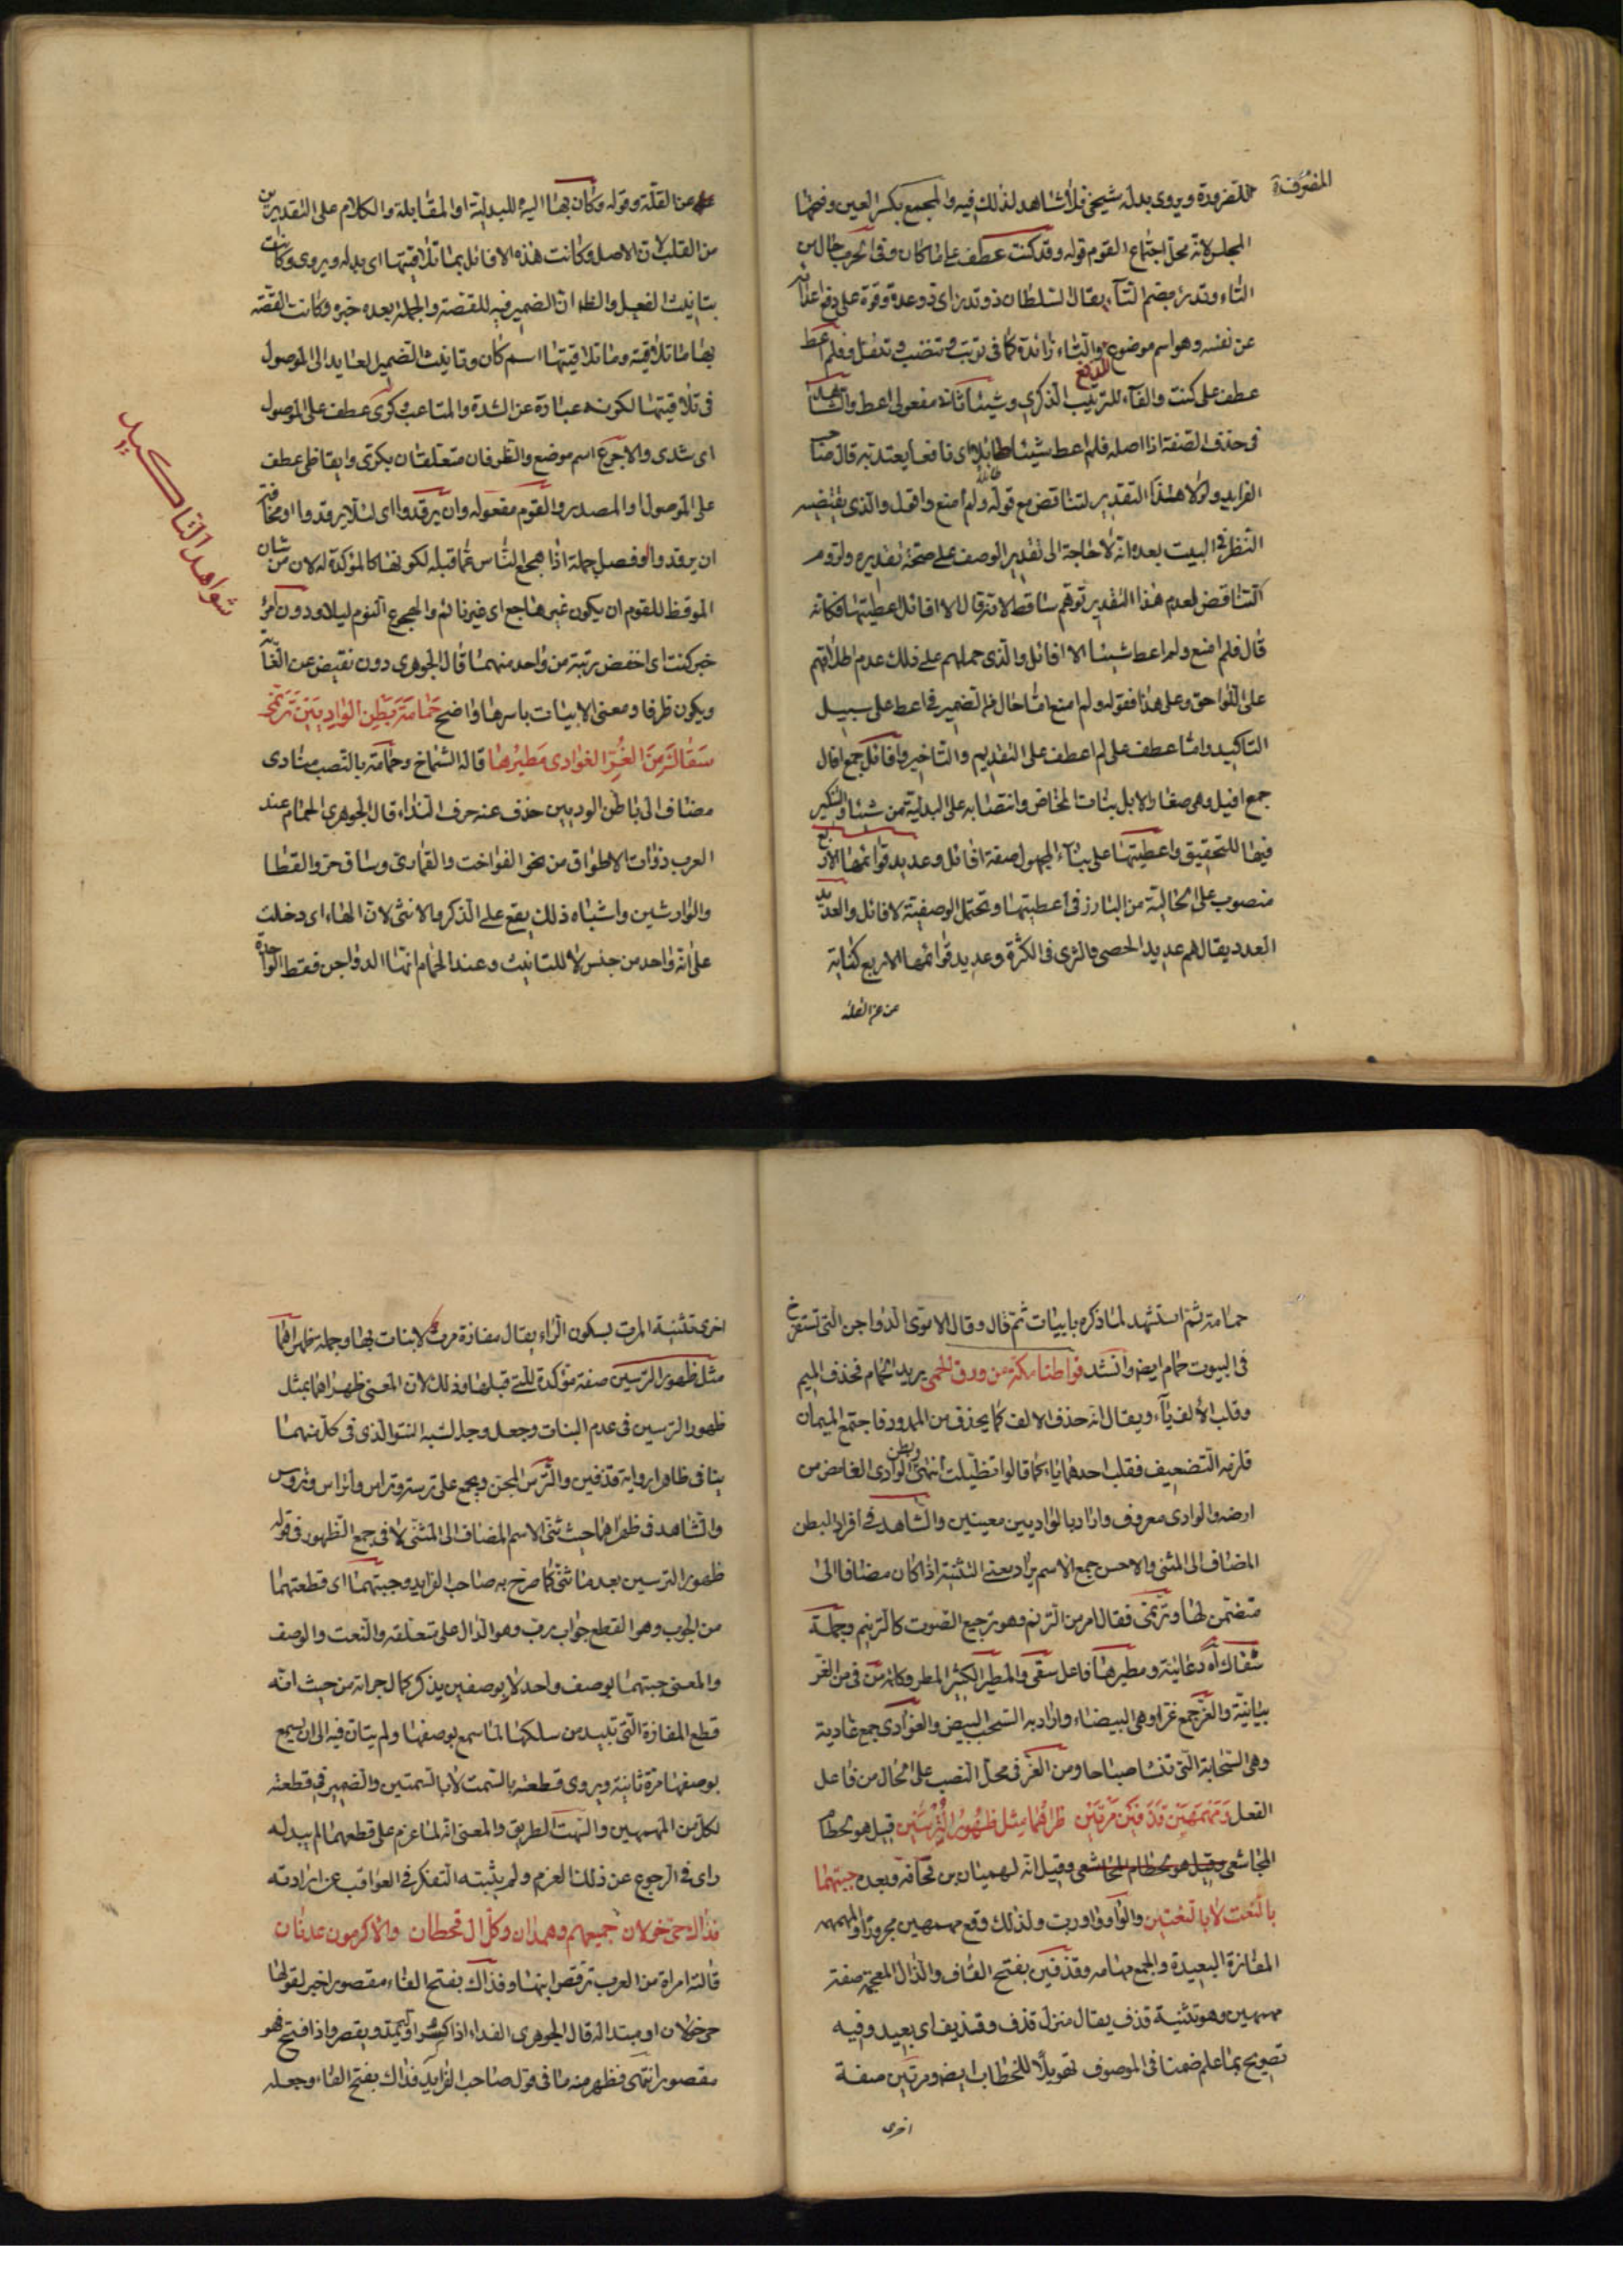 المفترقة
للضرورة ويروى بدله شيخي فلا شاهد لذلك فيه والمجمع بكسر العين وفتحها
المجلس لانه محل اجتماع القوم قوله وقد كنت عطف على ما كان وفى الحرب حال من
التاء وتدرء بضم التاء يقال السلطان ذو تدرء اى ذو عدة وقوة على دفع اعدائه
عن نفسه وهو اسم موضوع للدفع والتاء زائدة كما فى ترتب وتنضب وتتفل وفلم اعط
عطف على كنت والفاء للترتيب الذكرى وشيئا ثانى مفعولى اعط والشاهد
فى حذف الصفة اذا اصله فلم اعط شيئا طائلا اى نافعا يعتد به قال صاحب
الفرايد ولولا هذا التقدير لتناقض مع قوله ولم امنع واقول والذى يقتضيه
النظر فى البيت بعده انه لا حاجة الى تقدير الوصف على صحة تقديره ولزوم
التناقض لعدم هذا التقدير توهم ساقط لانه قال الا افائل اعطيتها فكانه
قال فلم امنع ولم اعط شيئا الا افائل والذى حملهم على ذلك عدم اطلاعهم
على اللواحق وعلى هذا فقوله ولم امنع اما حال من الضمير فى اعط على سبيل
التاكيد واما عطف على لم اعطف على التقديم والتاخير وافائل جمع افال
جمع افيل وهى صغار الابل بنات المخاض وانتصابه على البدلية من شيئا والتنكير
فيها للتحقيق واعطيتها على بناء المجهول صفة افائل وعديد قوائمها الاربع
منصوب على الحالية من البارز فى اعطيتها وتحتمل الوصفية لافائل والعديد
العدد يقال هم عديد الحصى والثرى فى الكثرة وعديد قوائمها الاربع كناية
عن عن القلة
عن القلة وقوله وكان بها اليه للبدلية او المقابلة والكلام على التقديرين
من القلب لان الاصل وكانت هذه الافائل بما تلاقيتها اى بدله ويروى وكانت
بتانيث الفعل والظ ان الضمير فيه للقصة والجملة بعده خبره وكانت القصة
بها ما تلاقيته وما تلاقيتها اسم كان وتانيث الضمير العايد الى الموصول
فى تلاقيتها لكونه عبارة عن الشدة والمتاعب وكرى عطف على الموصول
اى شدى والاجرع اسم موضع والظرفان متعلقان بكرى وايقاظى عطف
على الموصول والمصدر والقوم مفعوله وان يرقدوا اى لئلا يرقدوا او مخافة
ان يرقدوا وفصل جملة اذا هجع الناس عما قبله لكونها كالمؤكدة له لان من شان
الموقظ للقوم ان يكون غير هاجع اى غير نائم والهجوع النوم ليلا ودون امرئ
خبر كنت اى اخفض رتبة من واحد منهما قال الجوهرى دون نقيض عن الغاية
ويكون ظرفا ومعنى الابيات باسرها واضح حمامة بطن الواديين ترنمى
سقاك من الغر الغوادى مطيرها قاله الشماخ وحمامة بالنصب منادى
مضاف الى باطن الوديين حذف عنه حرف النداء قال الجوهرى الحمام عند
العرب ذوات الاطواق من نحو الفواخت والقمارى وساق حر والقطا
والوارشين واشباه ذلك يقع على الذكر والانثى لان الهاء اى دخلت
على انه واحد من جنس لا للتانيث وعند الحمام انها الدواجن فقط الواحدة
شواهد التاكيد
حمامة ثم استشهد لما ذكره بابيات ثم قال وقال الاموى الدواجن التى تستفرخ
فى البيوت حمام ايض وانشد قواطنا مكة من ورق الحمى يريد الحمام فحذف الميم
وقلب الالف ياء ويقال انه حذف الالف كما يحذف من الممدود فاجتمع الميمان
فلزمه التضعيف فقلب احدهما ياء كما قالوا تظنيت انتهى وبطن الوادى الغامض من
ارضه والوادى معروف واراد بالواديين معينين والشاهد فى افراد البطن
المضاف الى المثنى والاحسن جمع الاسم يراد بمعنى التثنية اذا كان مضافا الى
متضمن لها وترنمى فقال امر من الترنم وهو ترجيع الصوت كالترنيم وجملة
سقاك اه دعائية ومطيرها فاعل سقى والمطير الكثير المطر وكلمة من فى من الغر
بيانية والغر جمع غراء وهى البيضاء واراد به السحب البيض والغوادى جمع غادية
وهى السحابة التى تنشا صباحا ومن الغر فى محل النصب على الحال من فاعل
الفعل ومهمهين قذفين مرتين ظهراهما مثل ظهور الترسين قيل هو لخطام
المجاشعى وقيل هو لخطام المجاشعى وقيل انه لهميان بن قحافة وبعده جبتهما
بالنعت لا بالنعتين والواو واو رب ولذلك وقع مهمهين مجرورا والمهمه
المفازة البعيدة والجمع مهامه وقذفين بفتح القاف والذال المعجمة صفة
مهمهين وهو تثنية قذف يقال منزل قذف وقذيف اى بعيد وفيه
تصريح بما علم ضمنا فى الموصوف تهويلا للخطاب ايض ومرتين صفة
اخرى
اخرى تثنية المرت بسكون الراء يقال مفازة مرت لا نبات بها وجملة ظهراهما
مثل ظهور الترسين صفة مؤكدة للتى قبلها وذلك لان المعنى ظهراهما بمثل
ظهور الترسين فى عدم النبات وجعل وجه الشبه النتو الذى فى كل منهما
ينافى ظاهر رواية قذفين والترس المجن ويجمع على ترسة وتراس واتراس وتروس
والشاهد فى ظهراهما حيث ثنى الاسم المضاف الى المثنى لا فى جمع الظهور فى قوله
ظهور الترسين بعد ما ثنى كما صرح به صاحب الفرايد وجبتهما اى قطعتهما
من الجوب وهو القطع جواب رب وهو الدال على متعلقه والنعت والوصف
والمعنى جبتهما بوصف واحد لا بوصفين يذكر كمال جراته من حيث انه
قطع المفازة التى تبيد من سلكها لما سمع بوصفها ولم يتان فيه الى ان يسمع
بوصفها مرة ثانية ويروى قطعته بالسمت لا بالسمتين والضمير فى قطعته
لكل من المهمهين والسمت الطريق والمعنى انه لما عزم على قطعهما لم يبد له
راى فى الرجوع عن ذلك العزم ولم يثبته التفكر فى العواقب عن ارادته
فذاك حى خولان جميعهم وهمدان وكل ال قحطان والاكرمون عدنان
قالته امراة من العرب ترقص ابنها وفذاك بفتح الفاء مقصورا خبر لقولها
حى خولان او مبتدا له قال الجوهرى الفداء اذا كسر اوله يمد ويقصر واذا فتح فهو
مقصور انتهى فظهر منه ما فى قول صاحب الفرايد فذاك بفتح الفاء وجعله